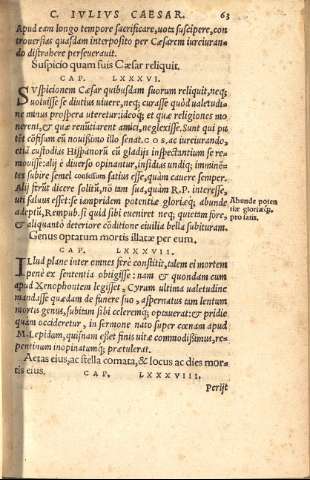 C. IVLIVS CAESAR. 63
Apud eam longo tempore sacrificare, uota suscipere, con
trouersias quasdam interposito per Cæsarem iureiuran-
do distrahere perseuerauit.
Suspicio quam suis Cæsar reliquit.
CAP. LXXXVI.
SVspicionem Cæsar quibusdam suorum reliquit, neq;
uoluisse se diutius uiuere, neq; curasse quòd ualetudi-
ne minus prospera uteretur: ideoq; et quæ religiones mo
nerent, & quæ renūtiarent amici, neglexisse. Sunt qui pu
tēt cōfisum eū nouißimo illo senat. cos. ac iureiurando,
etiā custodias Hispanorū cū gladijs inspectantium se re
mouisse: alij è diuerso opinantur, insidias undiq; imminē-
tes subire semel confestim satius esse, quàm cauere semper.
Alij ferūt dicere solitū, nō tam sua, quàm R.P. interesse,
uti saluus esset: se iampridem potentiæ gloriæq; abunde
adeptū, Rempub. si quid sibi eueniret neq; quietam fore,
& aliquanto deteriore cōditione ciuilia bella subituram.
Abunde poten
tiæ gloriæq;
pro satis.
Genus optatum mortis illatæ per eum.
CAP. LXXXVII.
ILlud plane inter omnes ferè constitit, talem ei mortem
penè ex sententia obtigisse: nam & quondam cum
apud Xenophontem legisset, Cyrum ultima ualetudine
mandasse quædam de funere suo, aspernatus tam lentum
mortis genus, subitam sibi celeremq; optauerat: & pridie
quàm occideretur, in sermone nato super cœnam apud
M. Lepidum, quisnam esset finis uitæ commodißimus, re-
pentinum inopinatumq; prætulerat.
Aetas eius, ac stella comata, & locus ac dies mor-
tis eius.
CAP. LXXXVIII.
Perijt